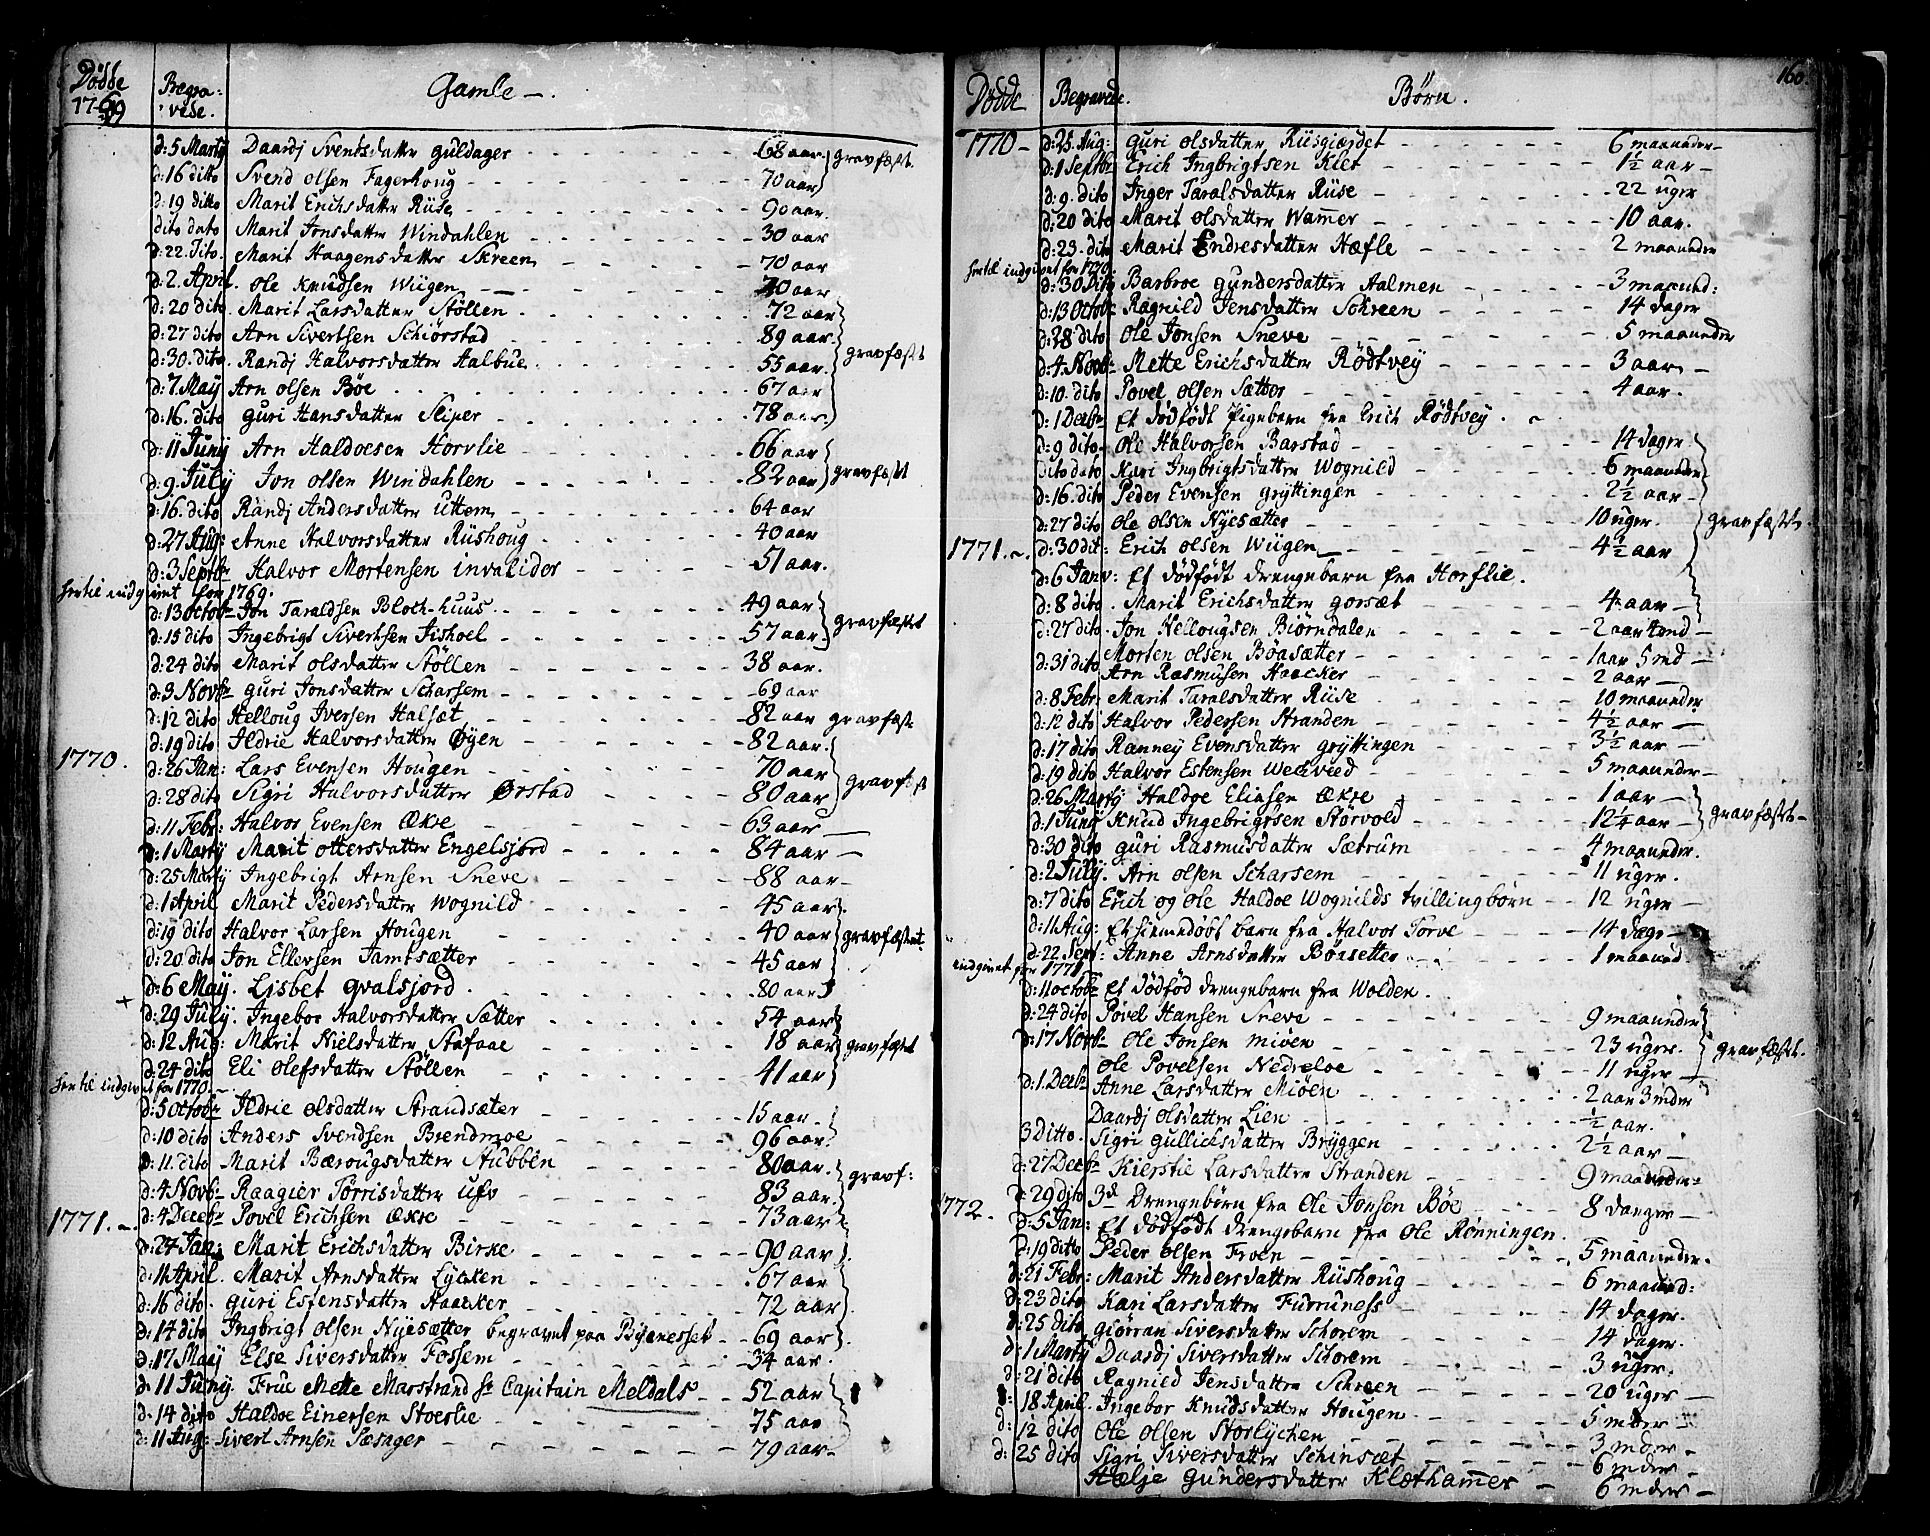 Dødde
1769
Begra:
vede.
Gamle —.
d: 5 Marty Daardj Sventsdatter guldager 68 aar. gravfæst
d: 16 ditto Svend olsen Fagerhoug 70 aar
d: 19 ditto Marit Erichsdatter Riise 90 aar.
dito dato Marit Jonsdatter Windahlen 30 aar
d: 22. Dito. Marit Haagensdatter Skreen 70 aar
d: 2. April. Ole Knudsen Wiigen 70 aar
d: 20 dito. Marit Larsdatter Stöllen 72 aar
d: 27 dito Arn Sivertsen Schiörstad 89 aar.
d: 30. dito. Randj Halvorsdatter Aalbue 55 aar. gravfæst
d: 7. May Arn olsen Böe 67 aar
d: 16. dito guri Hansdatter Sliper 78 aar
d: 11 Juny Arn Haldoesen Horvlie 66 aar
d: 9. July Jon olsen Windahlen 82 aar gravfæst
d: 16. dito Randj Andersdatter Uttem 64 aar
d: 27 Aug: Anne Halvorsdatter Riishoug 40 aar
d: 3 Septbr Halvor Mortensen invalider 51 aar.
her til indgivet for 1769.
d: 13 octobr Jon Taraldsen Bloch-huus 49 aar
d: 15 dito Ingebrigt Sivertsen Fishoel 57 aar. gravfæst
d: 24 dito Marit olsdatter Stöllen 38 aar.
d: 9 Novbr guri Jonsdatter Scharsem 69 aar
d: 12 dito Helloug Iversen Halsæt 82 aar gravfæst
d: 19 dito Ildrie Halvorsdatter Øyen 82 aar.
1770.
d: 26 Jan: Lars Evensen Hougen 70 aar
d: 28 dito Sigri Halvorsdatter Ørstad 80 aar gravfæst
d: 11 Febr: Halvor Evensen Ækre 63 aar
d: 1 Marty Marit ottersdatter Engelsjord 84 aar
d: 25 Marty Ingebrigt Arnsen Sneve 88 aar
d: 1 April Marit Pedersdatter Wognild 45 aar
d: 19 dito Halvor Larsen Hougen 40 aar gravfæstet
d: 20 dito Jon Ellevsen Jamtsætter 45 aar
d: 6 May. Lisbet qvalsjord. 80 aar
d: 29 July. Ingebor Halvorsdatter Sætter 54 aar
d: 12 Aug: Marit Nielsdatter Stafaae 18 aar gravfæst
d: 24 dito Eli Olefsdatter Stöllen 41 aar
her til indgivet for 1770.
d: 5 Octobr Ildrie olsdatter Strandsæter 15 aar.
d: 10 dito Anders Svendsen Brendmoe 96 aar
d: 11. dito Marit Bærougsdatter Stubben 80 aar. gravf:
d: 4 Novbr Raagier Torrisdatter Ufs 83 aar.
d: 4 Decebr Povel Erichsen Ækre 73 aar
1771.
d: 24 Jan: Marit Erichsdatter Birke 90 aar
d: 11 April. Marit Arnsdatter Lycken 67 aar
d: 16 dito. guri Estensdatter Haacker 72 aar
d: 14 dito Ingbrigt olsen Nyesætter begravet paa Byenesset 69 aar
d: 17 May Else Siversdatter Fossem 34 aar.
d: 11 Juny. Frue Mette Marstrand Hr Capitain Meldals 52 aar
d: 14 dito Haldoe Einersen Stoerlie 75 aar
d: 11 Aug: Sivert Arnsen Sæsager 79 aar
Dödde
Begravede.
Børn.
160
1770
d: 25. Aug: guri olsdatter Riisgiærdet 6 maaneder
d: 1 Septbr Erich Ingbrigtsen Kiet 1½ aar
d: 9. dito Inger Taralsdatter Riise 22 uger
d: 20 dito Marit olsdatter Wamer 10 aar.
d: 23. dito Marit Endresdatter Hæfle 2 maaneder
her til indgivet for 1770.
d: 30 Dito Barbroe gundersdatter Aalmen 3 maaned:
d: 13 Octobr Ragnild Jensdatter Schreen 14 dager
d: 28 dito Ole Jonsen Sneve 5 maaneder
d: 4. Novbr Mette Erichsdatter Rödtvey 3 aar
d: 10. dito Povel olsen Sætter 4 aar.
d: 1 Decbr Et dödfödt Pigebarn fra Erich Rödtvey.
d: 9 dito Ole Halvorsen Barstad 14 dager
dito dato Kari Ingbrigtsdatter Wognild 6 maaneder
d: 16. dito Peder Evensen gryttingen 2½ aar
d: 27 dito Ole olsen Nyesætter 10 uger. gravfæste
1771.
d: 30 dit: Erich olsen Wiigen 4½ aar
d: 6 Janv: Et dödfödt drengebarn fra Horflie.
d: 8 dito. Marit Erichsdatter gorsæt 4 aar
d: 27 dito. Jon Hellougsen Biörndalen 2 aar
d: 31 dito Morten olsen Böasætter 1 aar 5 md
Arn Rasmusen Haacker 2 aar
d: 8 Febr: Marit Taralsdatter Riise 10 maaneder
d: 12 dito Halvor Pedersen Stranden 4½ aar
d: 17 dito Ranney Evensdatter gryttingen 3½ aar
d: 19 dito Halvor Estensen Weckveed 5 maaneder
d: 26 Marty Haldoe Eliasen Ækre 1 aar
d: 1 Juny Knud Ingebrigtsen Storvold 12¼ aar gravfæstt
d: 30 dito guri Rasmusdatter Sætrum 4 maaneder.
d: 2 July. Arn olsen Scharsem 11 uger.
d: 7 dito Erich og Ole Haldoe Wognilds tvillingbörn 12 uger
d: 11 Aug: Et hiemedöbt barn fra Halvor Torve 14 dage
d: 22 Sept: Anne Arnsdatter Böasetter 1 maaned
indgivet for 1771
d: 11 octobr Et dödföd drengebarn fra Wolden.
d: 24 dito Povel Hansen Sneve 9 maaneder
d: 17 Novbr Ole Jonsen miöen 23 uger. gravfæst.
Ole Povelsen Nedreloe 11 uger
d: 1. Decbr Anne Larsdatter Miöen 2 aar 3 mder
Daardj olsdatter Lien ½ aar.
3 Ditto. Sigri gullichsdatter Bryggen 2½ aar
d: 27 Decbr Kierstie Larsdatter Stranden 9 maaneder
d: 29 dito 3de Drengebörn fra Ole Jonsen Böe 8 dager
1772.
d: 5 Jan: Et dödfödt drengebarn fra Ole Rönningen.
d: 19 ditto Peder olsen Froen 5 maaneder.
d: 21 Febr: Marit Andersdatter Riishoug 6 maaned:
d: 23 dito Kari Larsdatter Furruness 14 dager.
d: 25 dito giörran Siversdatter Schorem 14 dager.
d: 1 Marty Daardj Siversdatter Schorem 3 uger.
d: 21 dito Ragnild Jensdatter Schreen 20 uger
d: 18 April. Ingebor Knudsdatter Hougen 5 mder
d: 12 dito Ole Olsen Storlychen 3 mder
d: 25 dito Sigri Siversdatter Schinsæt 6 mder
Hælje gundersdatter Klæthammer 6 mder